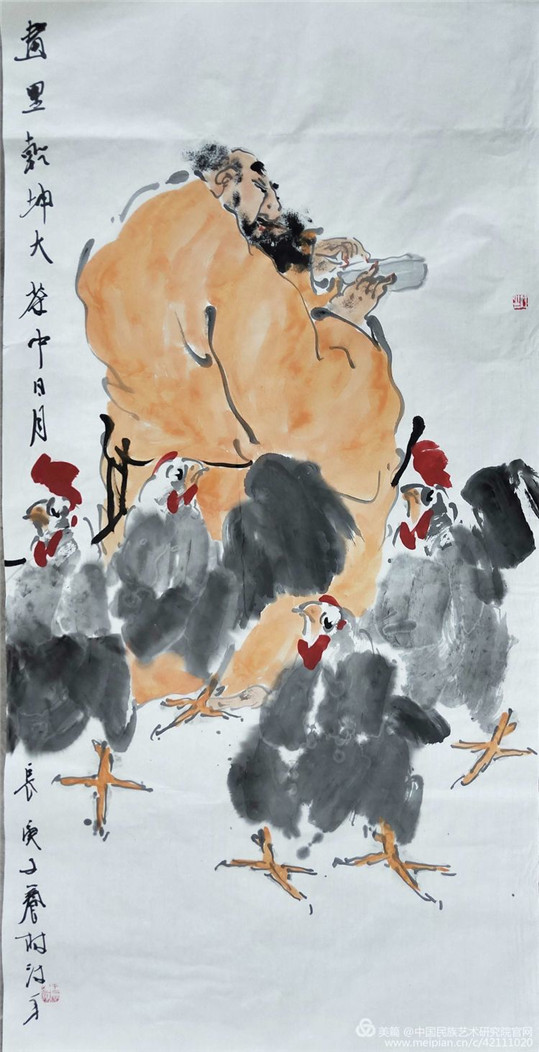 畫里乾坤大茶中日月
長庚子春时
美篇 @中国民族艺术研究院官网
www.meipian.cn/c/42111020